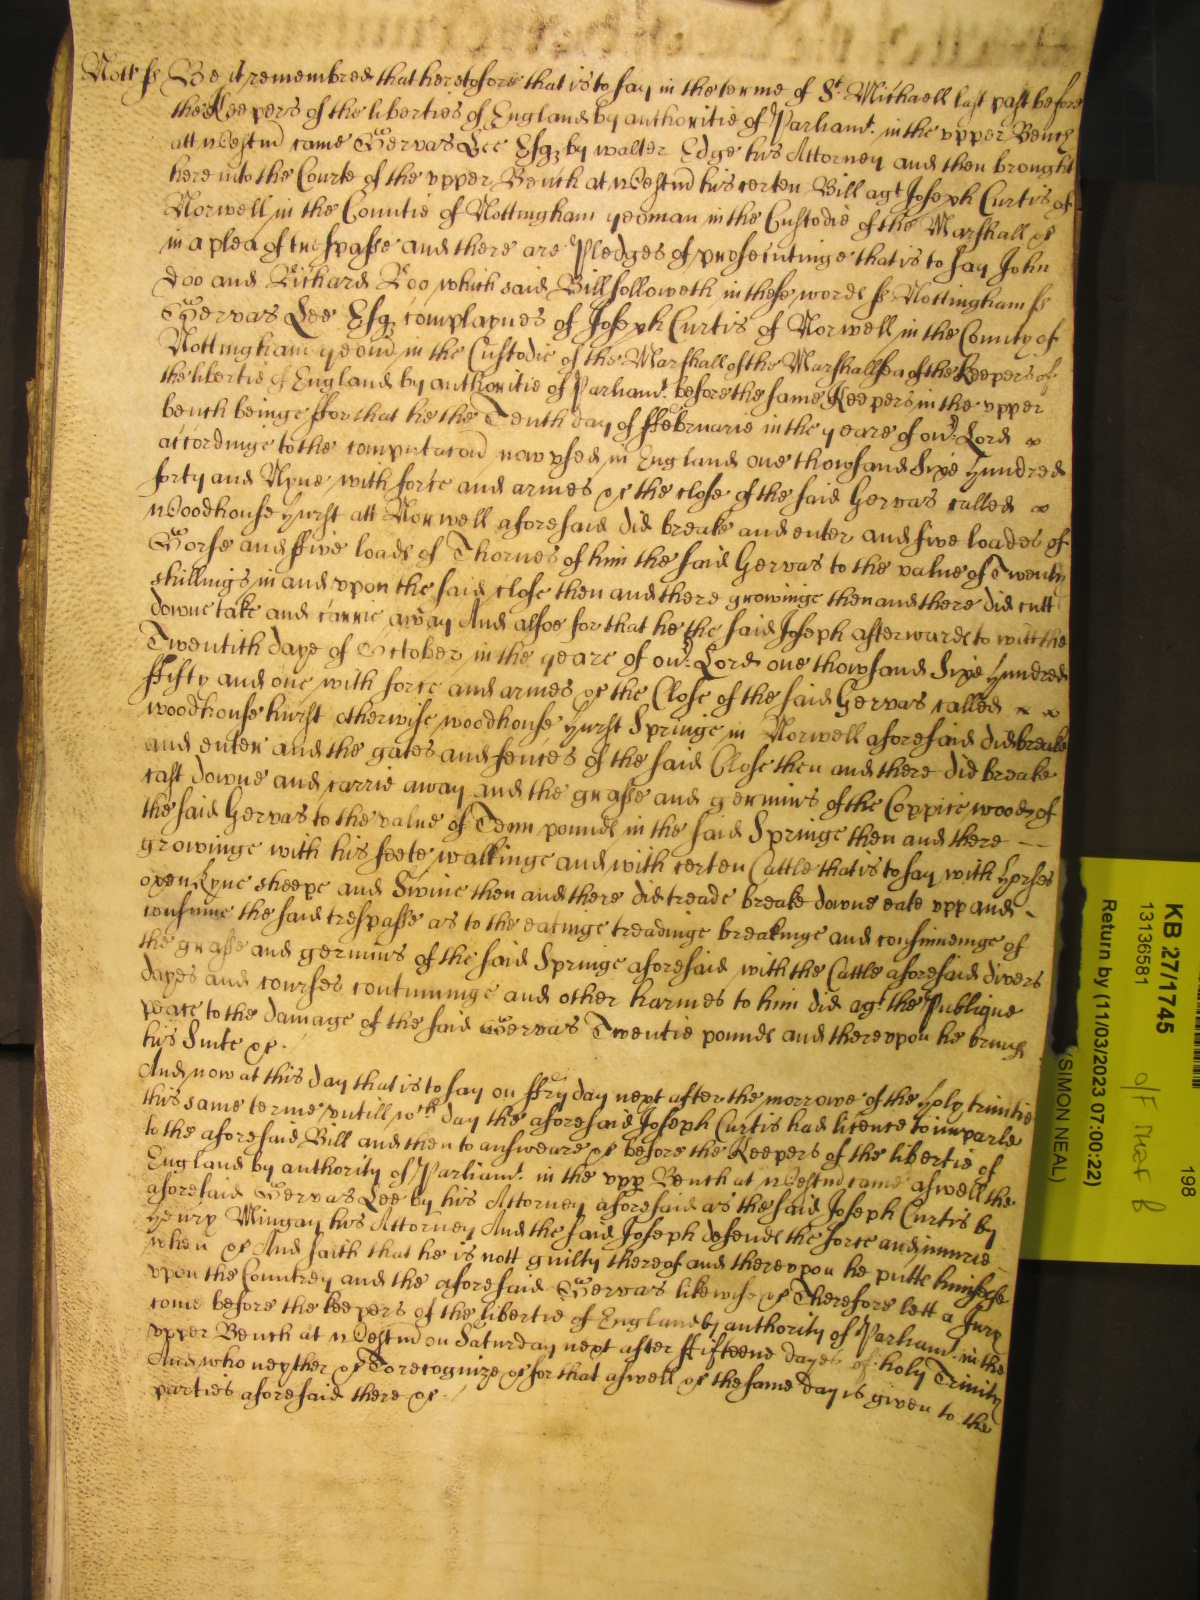 Nott ss Be it remembred that heretofore that is to say in the terme of St. Michaell last past before
the Keepers of the liberties of England by authoritie of Parliamt. in the vpper Bench
att Westm came Gervas Lee Esq by walter Edge his Attorney and then brought
here into the Courte of the vpper Bench at Westm his certen Bill agt Joseph Curtis of
Norwell in the Countie of Nottingham yeoman in the Custodie of the Marshall &c
in a plea of trespasse and there are Pledges of prosecutinge that is to say John
Doo and Richard Roo which said Bill followeth in these words ss Nottingham ss
Gervas Lee Esq complaynes of Joseph Curtis of Norwell in the County of
Nottingham yeom in the Custodie of the Marshall of the Marshallsea of the Keepers of
the libertie of England by authoritie of Parliamt. before the same Keepers in the vpper
bench beinge ffor that he the Tenth day of ffebruarie in the yeare of our Lord
accordinge to the computacon now vsed in England one thowsand Sixe hundred
forty and Nyne with force and armes &c the close of the said Gervas called
Woodhouse hurst att Norwell aforesaid did breake and enter and five loades of
Gorse and ffive loads of Thornes of him the said Gervas to the value of Twenty
shillings in and vpon the said close then and there growinge then and there did cutt
downe take and carrie away And alsoe for that he the said Joseph afterwards to witt the
Twentith daye of October in the yeare of our Lord one thowsand Sixe hundred
ffifty and one with force and armes &c the Close of the said Gervas called
woodhouse hurst otherwise woodhouse hurst Springe in Norwell aforesaid did breake
and enter and the gates and fences of the said Close then and there did breake
cast downe and carrie away and the grasse and germins of the Coppice woods of
the said Gervas to the value of Tenn pounds in the said Springe then and there --
growinge with his feete walkinge and with certen Cattle that is to say with horses
oxen Kyne sheepe and Swine then and there did treade breake downe eate vpp and -
consume the said trespasse as to the eatinge treadinge breakinge and consumeinge of
the grasse and germins of the said Springe aforesaid with the Cattle aforesaid divers
dayes and courses continuinge and other harmes to him did agt the Publique
peace to the damage of the said Gervas Twentie pounds and therevpon he brings
his Suite &c.
And now at this day that is to say on ffryday next after the morrowe of the holy trinitie
this same terme vntill wch day the aforesaid Joseph Curtis had licence to imparle
to the aforesaid Bill and then to answeare &c before the Keepers of the libertie of
England by authority of Parliamt. in the vpp Bench at Westm came aswell the
aforesaid Gervas Lee by his Attorney aforesaid as the said Joseph Curtis by
Henry Mingay his Attorney And the said Joseph defends the force and iniurie
when &c And saith that he is nott guilty thereof and therevpon he putts himselfe
vpon the Countrey and the aforesaid Gervas likewise &c Therefore lett a Jury
come before the keepers of the libertie of England by authority of Parliamt in the
vpper Bench at Westm on Saturday next after ffifteene dayes of holy Trinity
And who neyther &c To recognize &c for that aswell &c the same day is given to the
parties aforesaid there &c.
KB 27/1745
198
13136581
Return by (11/03/2023 07:00:22)
(SIMON NEAL)